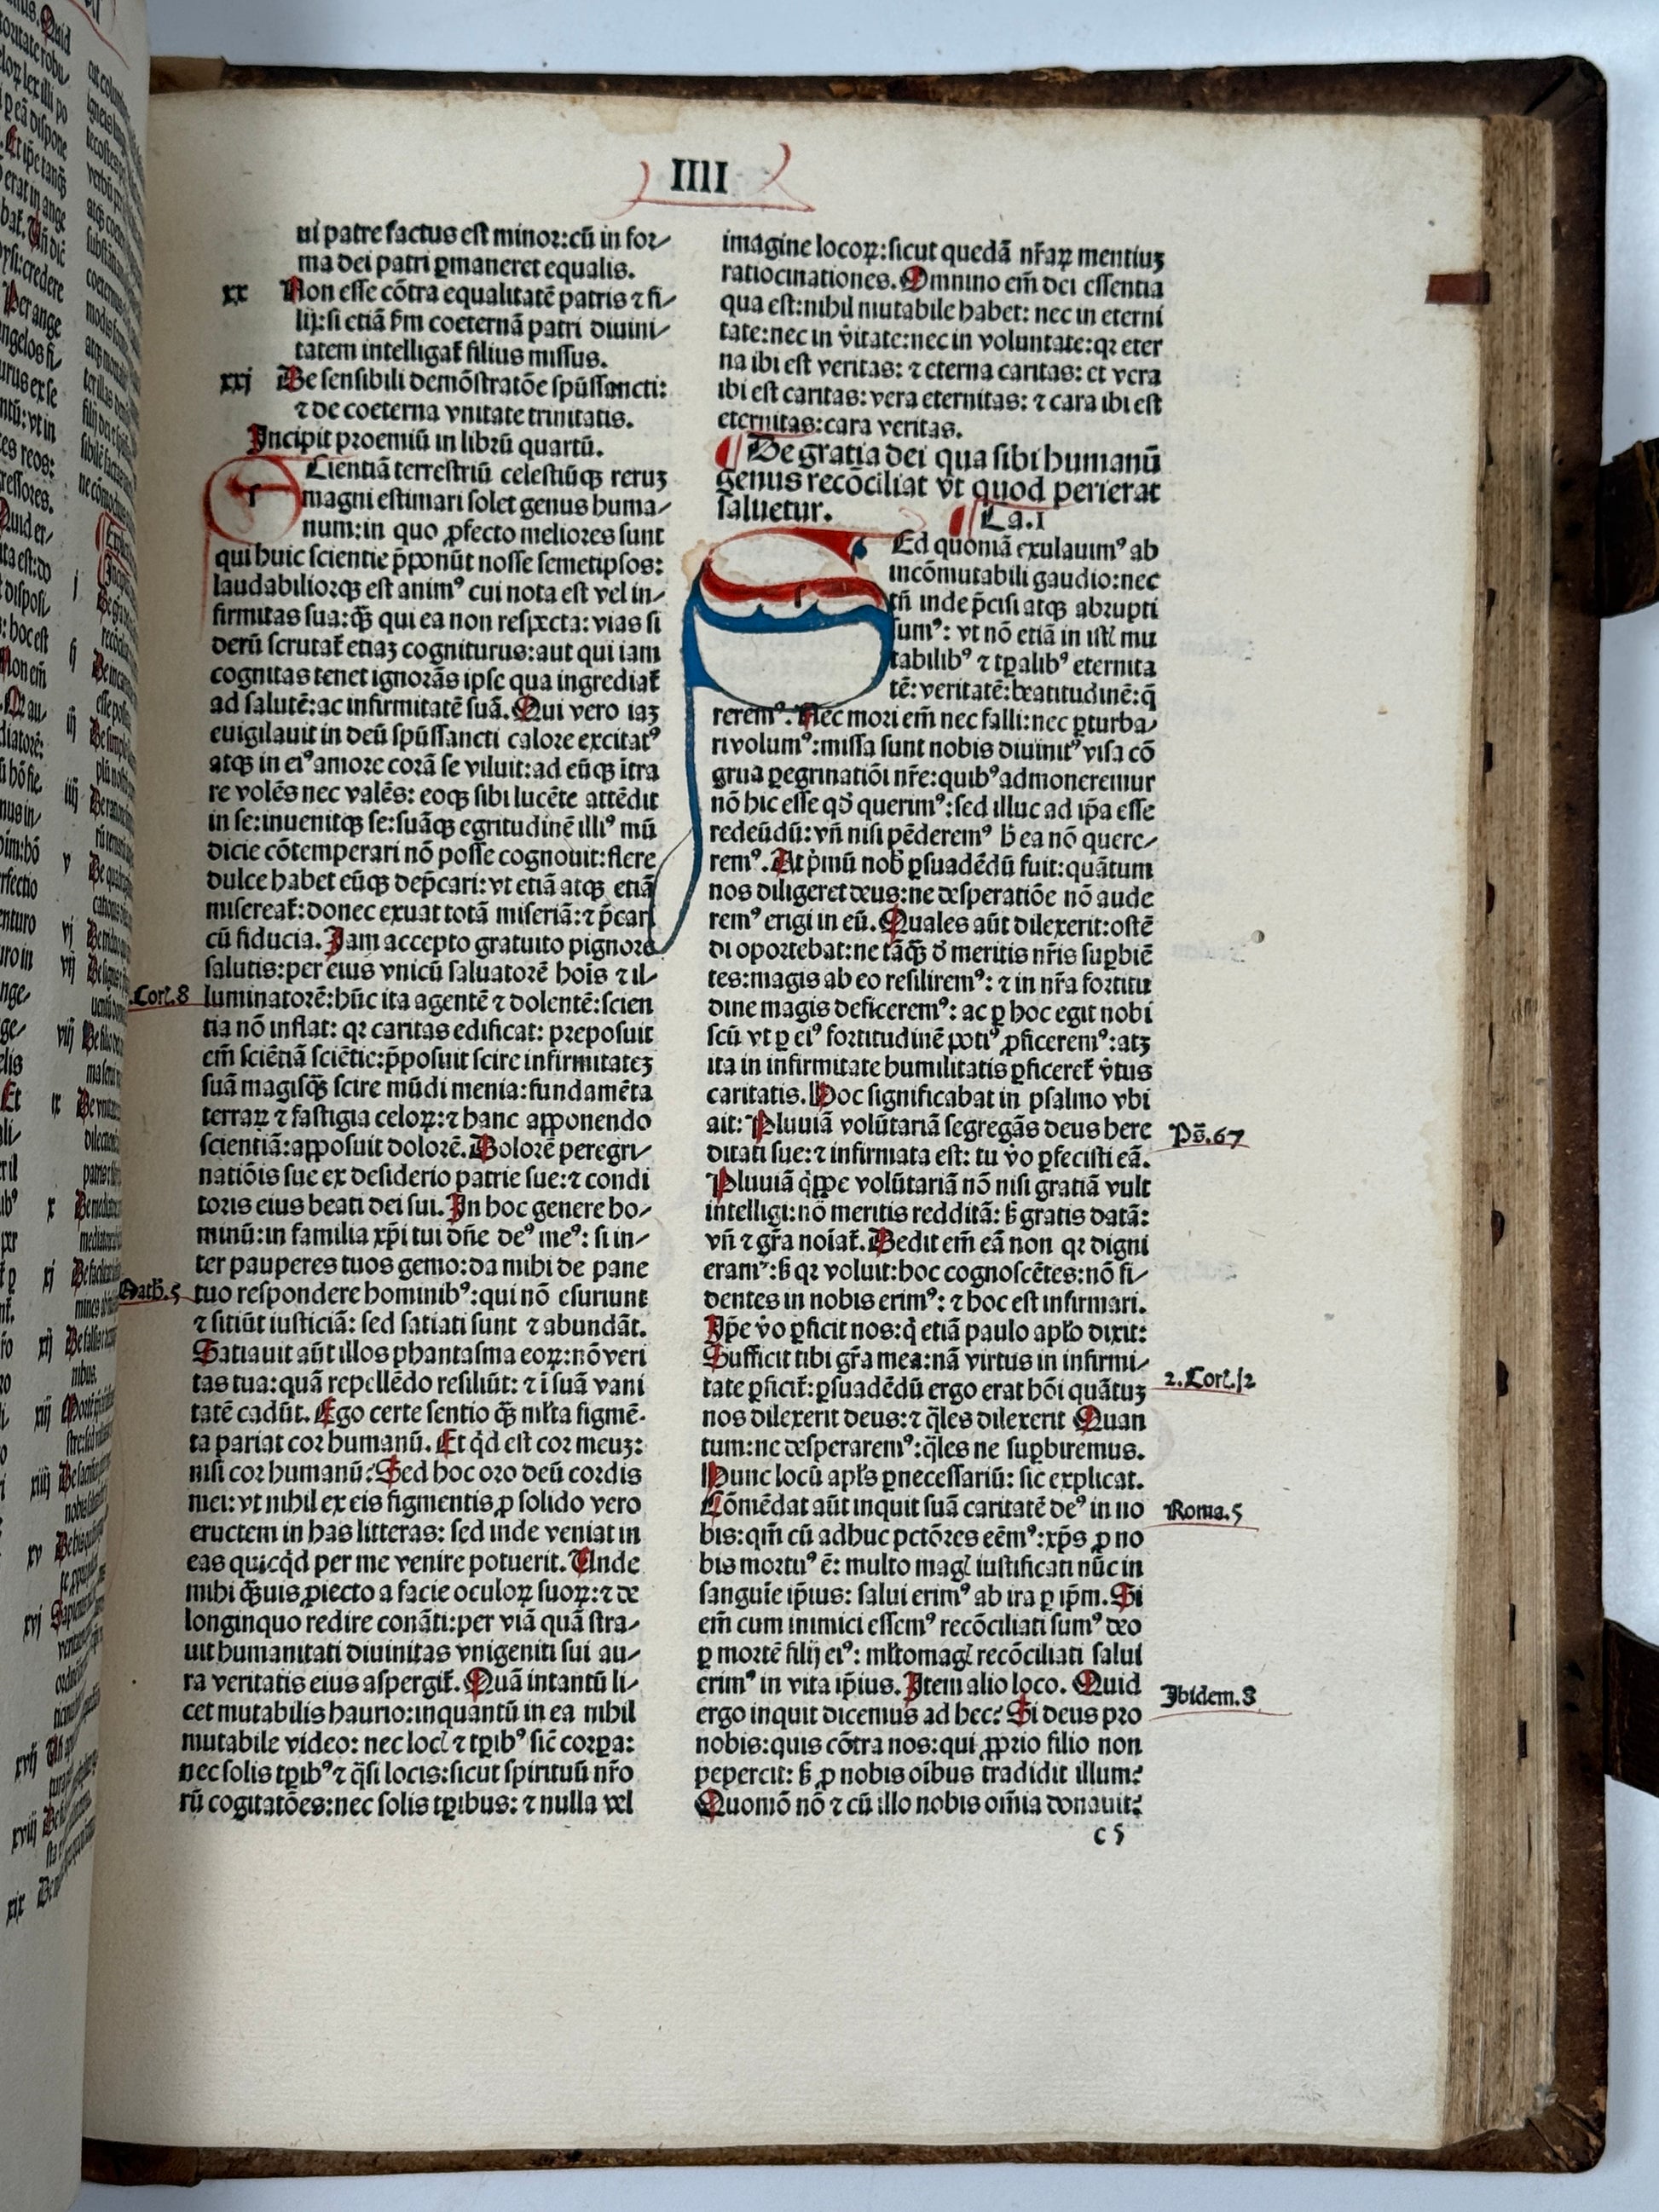 IIII
ui patre factus est minor: cū in for⸗
ma dei patri ꝑmaneret equalis.
xx Non esse cōtra equalitatē patris ⁊ fi⸗
lij: si etiā ẜm coeternā patri diuini⸗
tatem intelligat᷑ filius missus.
xxj De sensibili demōstratōe spūssancti:
⁊ de coeterna vnitate trinitatis.
Incipit proemiū in librū quartū.
Cientiā terrestriū celestiūqꝫ reruꝫ
magni estimari solet genus huma⸗
num: in quo ꝓfecto meliores sunt
qui huic scientie p̄ponūt nosse semetipsos:
laudabiliorqꝫ est animꝰ cui nota est vel in⸗
firmitas sua: qꝫ̄ qui ea non respecta: vias si
derū scrutat᷑ etiaꝫ cogniturus: aut qui iam
cognitas tenet ignorās ipse qua ingrediat᷑
ad salutē: ac infirmitatē suā. Qui vero iaꝫ
euigilauit in deū spūssancti calore excitatꝰ
atqꝫ in eiꝰ amore corā se viluit: ad eūqꝫ ītra
re volēs nec valēs: eoqꝫ sibi lucēte attēdit
in se: inuenitqꝫ se: suāqꝫ egritudinē illiꝰ mū
dicie cōtemperari nō posse cognouit: flere
dulce habet eūqꝫ dep̄cari: vt etiā atqꝫ etiā
misereat᷑: donec exuat totā miseriā: ⁊ p̄cari
cū fiducia. Jam accepto gratuito pignore
salutis: per eius vnicū saluatorē hoīs ⁊ il⸗
.Cort̄.8 luminatorē: hūc ita agentē ⁊ dolentē: scien
tia nō inflat: qꝛ caritas edificat: preposuit
em̄ sciētiā sciētie: p̄posuit scire infirmitateꝫ
suā magisqꝫ̄ scire mūdi menia: fundamēta
terraꝝ ⁊ fastigia celoꝝ: ⁊ hanc apponendo
scientiā: apposuit dolorē. Dolorē peregri⸗
natiōis sue ex desiderio patrie sue: ⁊ condi
toris eius beati dei sui. In hoc genere ho⸗
minū: in familia xp̄i tui dn̄e deꝰ meꝰ: si in⸗
ter pauperes tuos gemo: da mihi de pane
Math̄.5 tuo respondere hominibꝰ: qui nō esuriunt
⁊ sitiūt iusticiā: sed satiati sunt ⁊ abundāt.
Satiauit aūt illos phantasma eoꝝ: nō veri
tas tua: quā repellēdo resiliūt: ⁊ ī suā vani
tatē cadūt. Ego certe sentio qꝫ̄ ml̄ta figmē⸗
ta pariat cor humanū. Et qd̄ est cor meuꝫ:
nisi cor humanū? Sed hoc oro deū cordis
mei: vt nihil ex eis figmentis ꝓ solido vero
eructem in has litteras: sed inde veniat in
eas quicqd̄ per me venire potuerit. Unde
mihi qꝫ̄uis ꝓiecto a facie oculoꝝ suoꝝ: ⁊ de
longinquo redire conāti: per viā quā stra⸗
uit humanitati diuinitas vnigeniti sui au⸗
ra veritatis eius aspergit᷑. Quā intantū li⸗
cet mutabilis haurio: inquantū in ea nihil
mutabile video: nec locꝭ ⁊ tꝑibꝰ sic̄ corꝑa:
nec solis tꝑibꝰ ⁊ q̄si locis: sicut spirituū nr̄o
rū cogitatōes: nec solis tꝑibus: ⁊ nulla vel
imagine locoꝝ: sicut quedā nr̄aꝝ mentiuꝫ
ratiocinationes. Omnino em̄ dei essentia
qua est: nihil mutabile habet: nec in eterni
tate: nec in v̄itate: nec in voluntate: qꝛ eter
na ibi est veritas: ⁊ eterna caritas: et vera
ibi est caritas: vera eternitas: ⁊ cara ibi est
eternitas: cara veritas.
¶ De gratia dei qua sibi humanū
genus recōciliat vt quod perierat
saluetur. ¶ Ca.I
Ed quoniā exulauimꝰ ab
incōmutabili gaudio: nec
tn̄ inde p̄cisi atqꝫ abrupti
sumꝰ: vt nō etiā in istꝭ mu
tabilibꝰ ⁊ tꝑalibꝰ eternita
tē: veritatē: beatitudinē: q̄
reremꝰ. Nec mori em̄ nec falli: nec ꝑturba⸗
ri volumꝰ: missa sunt nobis diuinitꝰ visa cō
grua ꝑegrinatiōi nr̄e: quibꝰ admoneremur
nō hic esse qd̄ querimꝰ: sed illuc ad ip̄a esse
redeūdū: vn̄ nisi pēderemꝰ h̄ ea nō quere⸗
remꝰ. At p̄mū nob̄ ꝑsuadēdū fuit: quātum
nos diligeret deus: ne desperatiōe nō aude
remꝰ erigi in eū. Quales aūt dilexerit: ostē
di oportebat: ne tāqꝫ̄ d̄ meritis nr̄is suꝑbiē
tes: magis ab eo resiliremꝰ: ⁊ in nr̄a fortitu
dine magis deficeremꝰ: ac ꝑ hoc egit nobi
scū vt ꝑ eiꝰ fortitudinē potiꝰ ꝓficeremꝰ: atꝫ
ita in infirmitate humilitatis ꝑficeret᷑ v̄tus
caritatis. Hoc significabat in psalmo vbi
ait: Pluuiā volūtariā segregās deus here Ps̄.67
ditati sue: ⁊ infirmata est: tu v̄o ꝑfecisti eā.
Pluuiā q̄ppe volūtariā nō nisi gratiā vult
intelligi: nō meritis redditā: s̄ gratis datā:
vn̄ ⁊ gr̄a noīat᷑. Dedit em̄ eā non qꝛ digni
eramꝰ: s̄ qꝛ voluit: hoc cognoscētes: nō fi⸗
dentes in nobis erimꝰ: ⁊ hoc est infirmari.
Ip̄e v̄o ꝑficit nos: q̄ etiā paulo apl̄o dixit:
Sufficit tibi gr̄a mea: nā virtus in infirmi⸗
tate ꝑficit᷑: ꝑsuadēdū ergo erat hōi quātuꝫ 2.Cort̄.12
nos dilexerit deus: ⁊ q̄les dilexerit Quan
tum: ne desperaremꝰ: q̄les ne suꝑbiremus.
Hunc locū apl̄s ꝑnecessariū: sic explicat.
Cōmēdat aūt inquit suā caritatē deꝰ in no Roma.5
bis: qm̄ cū adhuc pctōres eēmꝰ: xp̄s ꝓ no
bis mortuꝰ ē: multo magꝭ iustificati nūc in
sanguīe ip̄ius: salui erimꝰ ab ira ꝑ ip̄m. Si
em̄ cum inimici essemꝰ recōciliati sumꝰ deo
ꝑ mortē filij eiꝰ: ml̄tomagꝭ recōciliati salui
erimꝰ in vita ip̄ius. Item alio loco. Quid Ibidem.8
ergo inquit dicemus ad hec? Si deus pro
nobis: quis cōtra nos: qui ꝓprio filio non
pepercit: s̄ ꝓ nobis oībus tradidit illum?
Quomō nō ⁊ cū illo nobis om̄ia donauit?
c 5